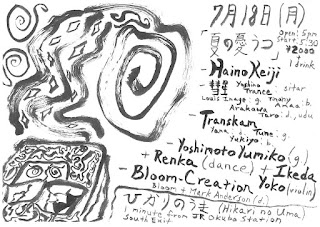 7月18日(月)
open: 5pm
start: 5:30
「夏の憂うつ」
¥2000
1 drink
- Haino Keiji
- 彗星 Yoshino Trance sitar
Louis Inage: g. Tmony Anaa: b.
Arakawa Taro: d, udu
- Transkam
Yana: d. Tune: g.
Yukiyo: b.
- Yoshimoto Yumiko (g)
+ Renka (dance) + Ikeda
- Bloom-Creation Yoko (violin)
Bloom + Mark Anderson (d.)
ひかりのうま (Hikari no Uma)
1 minute from JR Okubo Station
South Exit